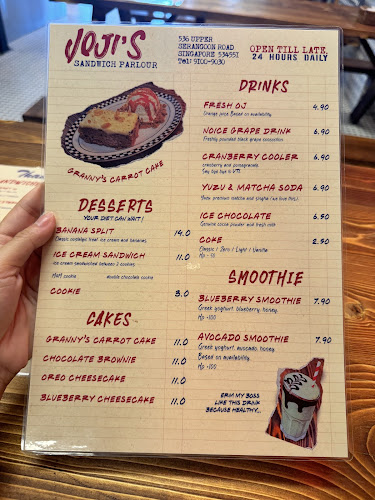 JOJI'S
SANDWICH PARLOUR
536 UPPER
SERANGOON ROAD
SINGAPORE 534551
Tel: 9100-9030
OPEN TILL LATE,
24 HOURS DAILY
GRANNY'S CARROT CAKE
DESSERTS
YOUR DIET CAN WAIT!
BANANA SPLIT 14.0
Classic nostalgic treat ice cream and bananas
ICE CREAM SANDWICH 11.0
Ice cream sandwiched between 2 cookies
double chocolate cookie
COOKIE 3.0
CAKES
GRANNY'S CARROT CAKE 11.0
CHOCOLATE BROWNIE 11.0
OREO CHEESECAKE 11.0
BLUEBERRY CHEESECAKE 11.0
DRINKS
FRESH OJ 4.90
Orange juice Based on availability
NOICE GRAPE DRINK 6.90
Freshly pounded black grape concoction
CRANBERRY COOLER 6.90
cranberry and pomegranate
YUZU & MATCHA SODA 6.90
ICE CHOCOLATE 6.50
Genuine cocoa powder and fresh milk
COKE 2.50
Classic / Zero / Light / Vanilla
Hp - 50
SMOOTHIE
BLUEBERRY SMOOTHIE 7.90
Greek yoghurt, blueberry, honey.
Hp +100
AVOCADO SMOOTHIE 7.90
Greek yoghurt, avocado, honey.
Based on availability
Hp +100
ERM MY BOSS
LIKE THIS DRINK
BECAUSE HEALTHY...